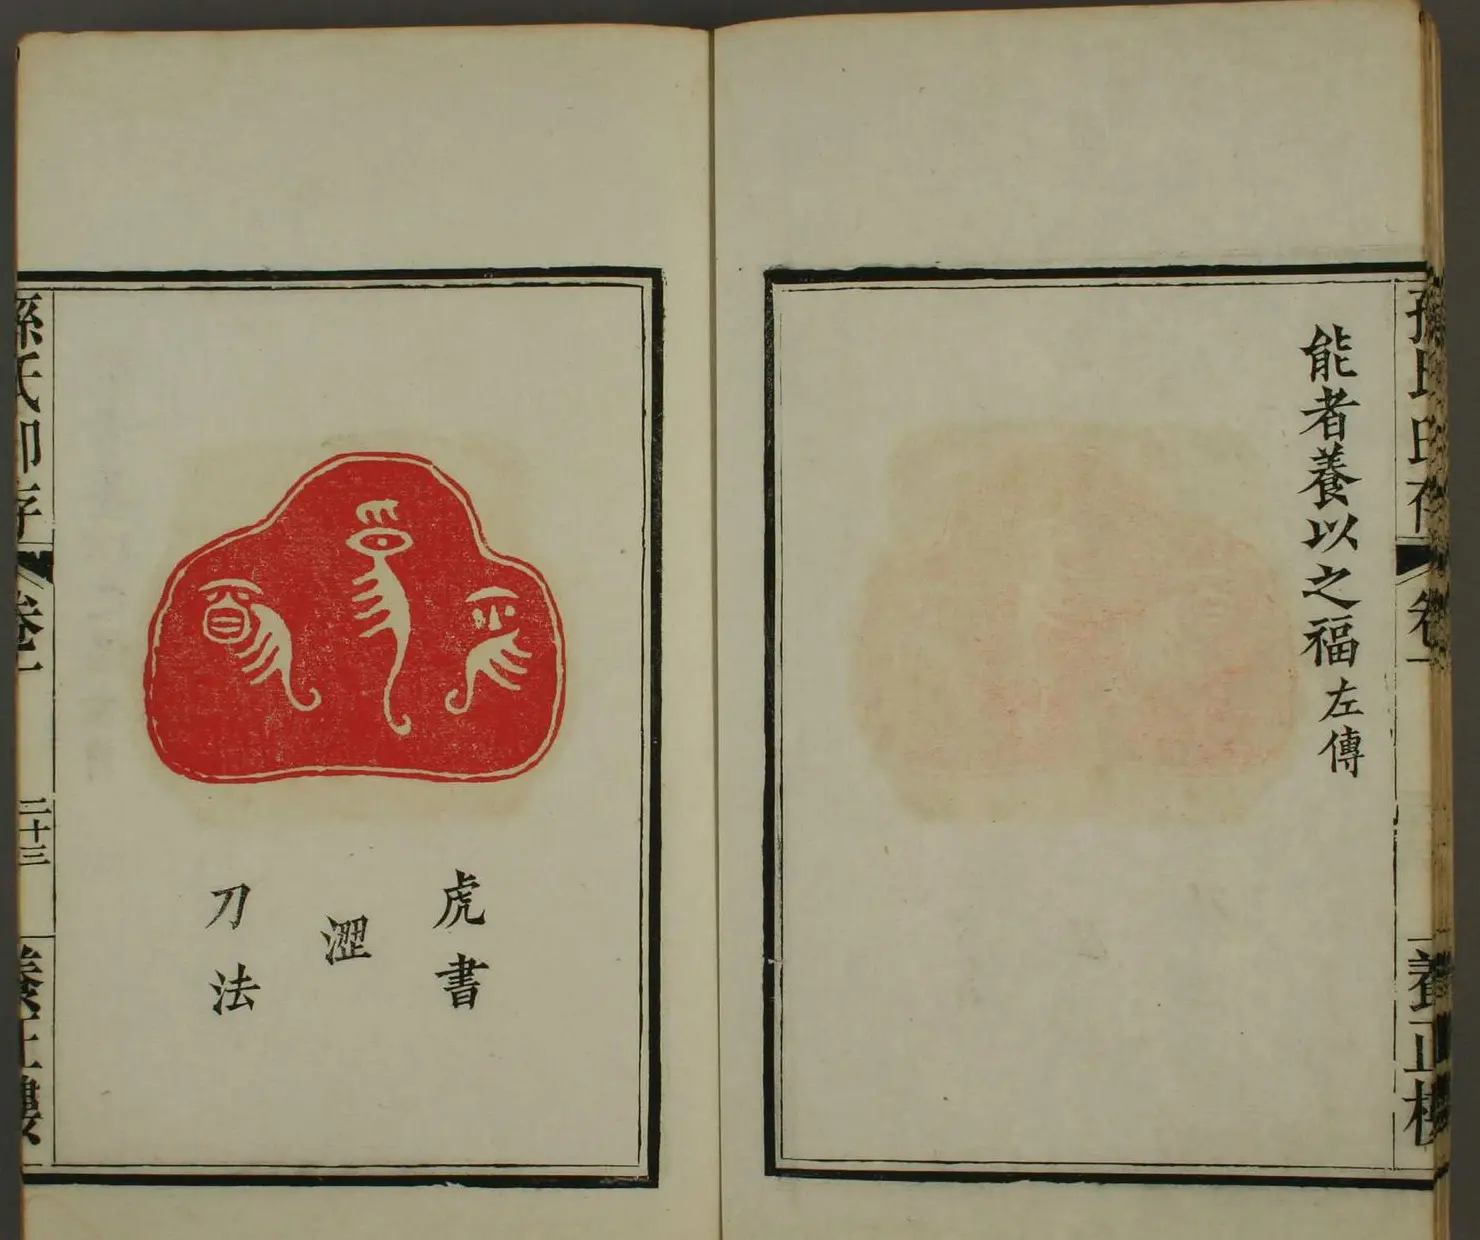 孫氏印存
卷一
養正樓
能者養以之福 左傳
虎書
澀
刀法
孫氏印存
卷一
二十三
養正樓